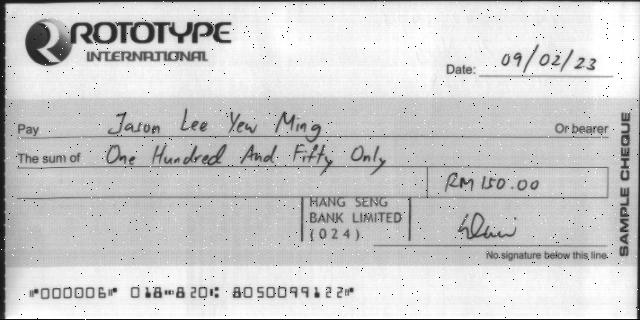 ROTOTYPE
INTERNATIONAL
Date: 09/02/23
Pay Jason Lee Yew Ming Or bearer
The sum of One Hundred And Fifty Only
RM 150.00
HANG SENG
BANK LIMITED
(024)
No signature below this line
SAMPLE CHEQUE
⑈000006⑈ 018⑉820⑆ 8050099122⑈